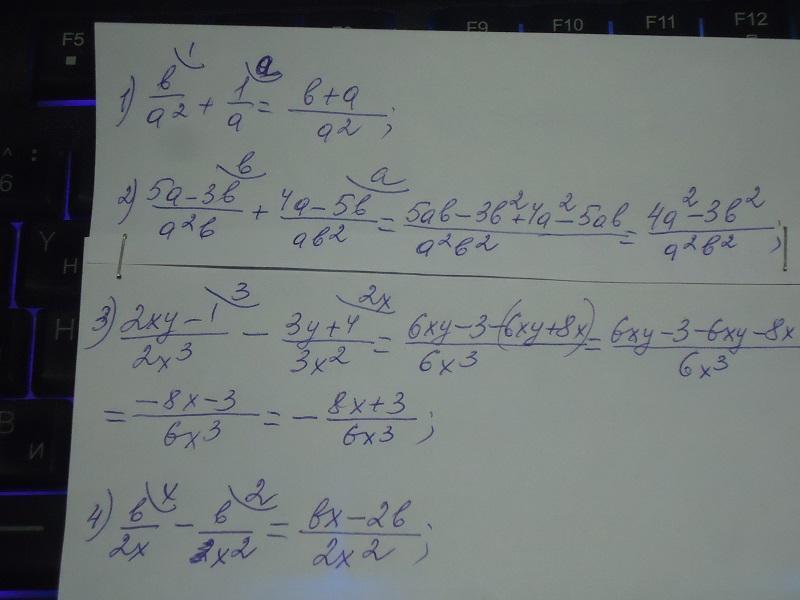 F5 F9 F10 F11 F12
1) в/a² + 1/a = (в+a)/a²;
2) (5a-3в)/(a²в) + (4a-5в)/(aв²) = (5aв-3в²+4a²-5aв)/(a²в²) = (4a²-3в²)/(a²в²);
3) (2xy-1)/(2x³) - (3y+4)/(3x²) = (6xy-3-(6xy+8x))/(6x³) = (6xy-3-6xy-8x)/(6x³)
= (-8x-3)/(6x³) = -(8x+3)/(6x³);
4) в/(2x) - в/x² = (вx-2в)/(2x²);